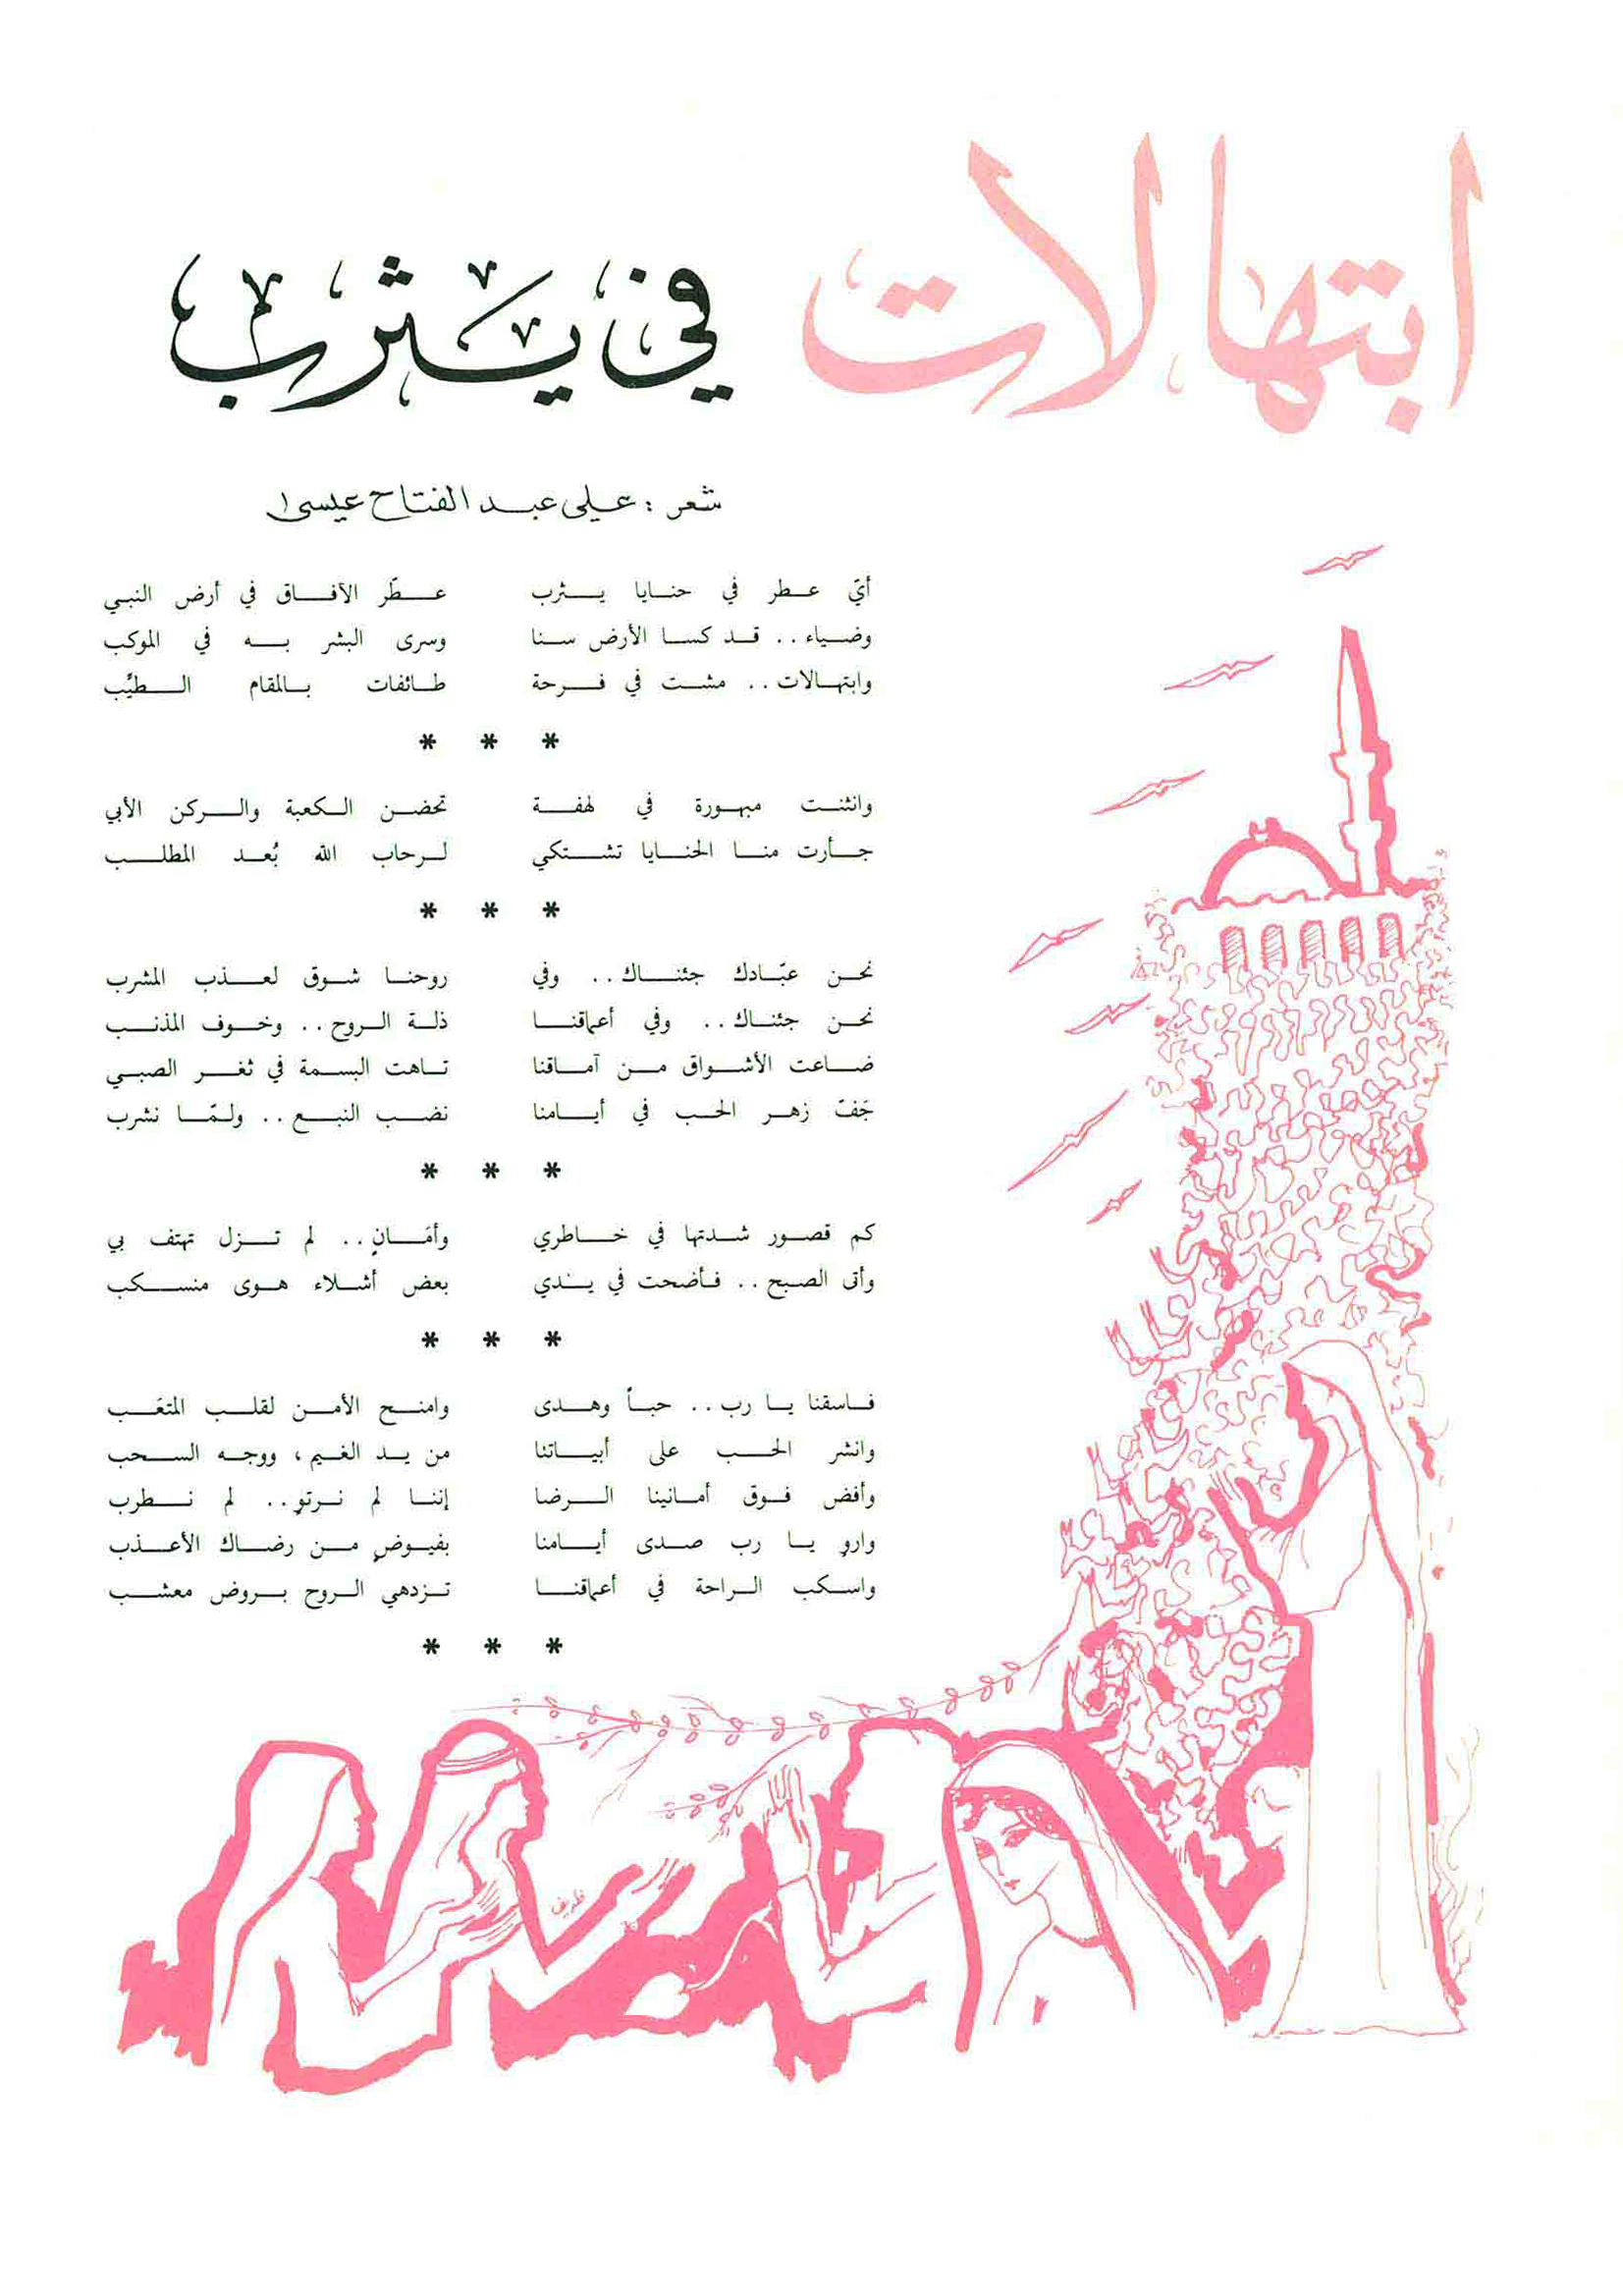 ابتهالات في يثرب
شعر : علي عبد الفتاح عيسى
أيّ عطر في حنايا يثرب عطّر الآفاق في أرض النبي
وضياء .. قد كسا الأرض سنا وسرى البشر به في الموكب
وابتهالات .. مشت في فرحة طائفات بالمقام الطيّب
* * *
وانثنت مبهورة في لهفة تحضن الكعبة والركن الأبي
جأرت منا الحنايا تشتكي لرحاب الله بُعد المطلب
* * *
نحن عبّادك جئناك .. وفي روحنا شوق لعذب المشرب
نحن جئناك .. وفي أعماقنا ذلة الروح .. وخوف المذنب
ضاعت الأشواق من آماقنا تاهت البسمة في ثغر الصبي
جَفّ زهر الحب في أيامنا نضب النبع .. ولمّا نشرب
* * *
كم قصور شدتها في خاطري وأمَانٍ .. لم تزل تهتف بي
وأتى الصبح .. فأضحت في يدي بعض أشلاء هوى منسكب
* * *
فاسقنا يا رب .. حباً وهدى وامنح الأمن لقلب المتعَب
وانشر الحب على أبياتنا من يد الغيم ، ووجه السحب
وأفض فوق أمانينا الرضا إننا لم نرتوِ .. لم نطرب
واروِ يا رب صدى أيامنا بفيوضٍ من رضاك الأعذب
واسكب الراحة في أعماقنا تزدهي الروح بروض معشب
* * *
ظريف